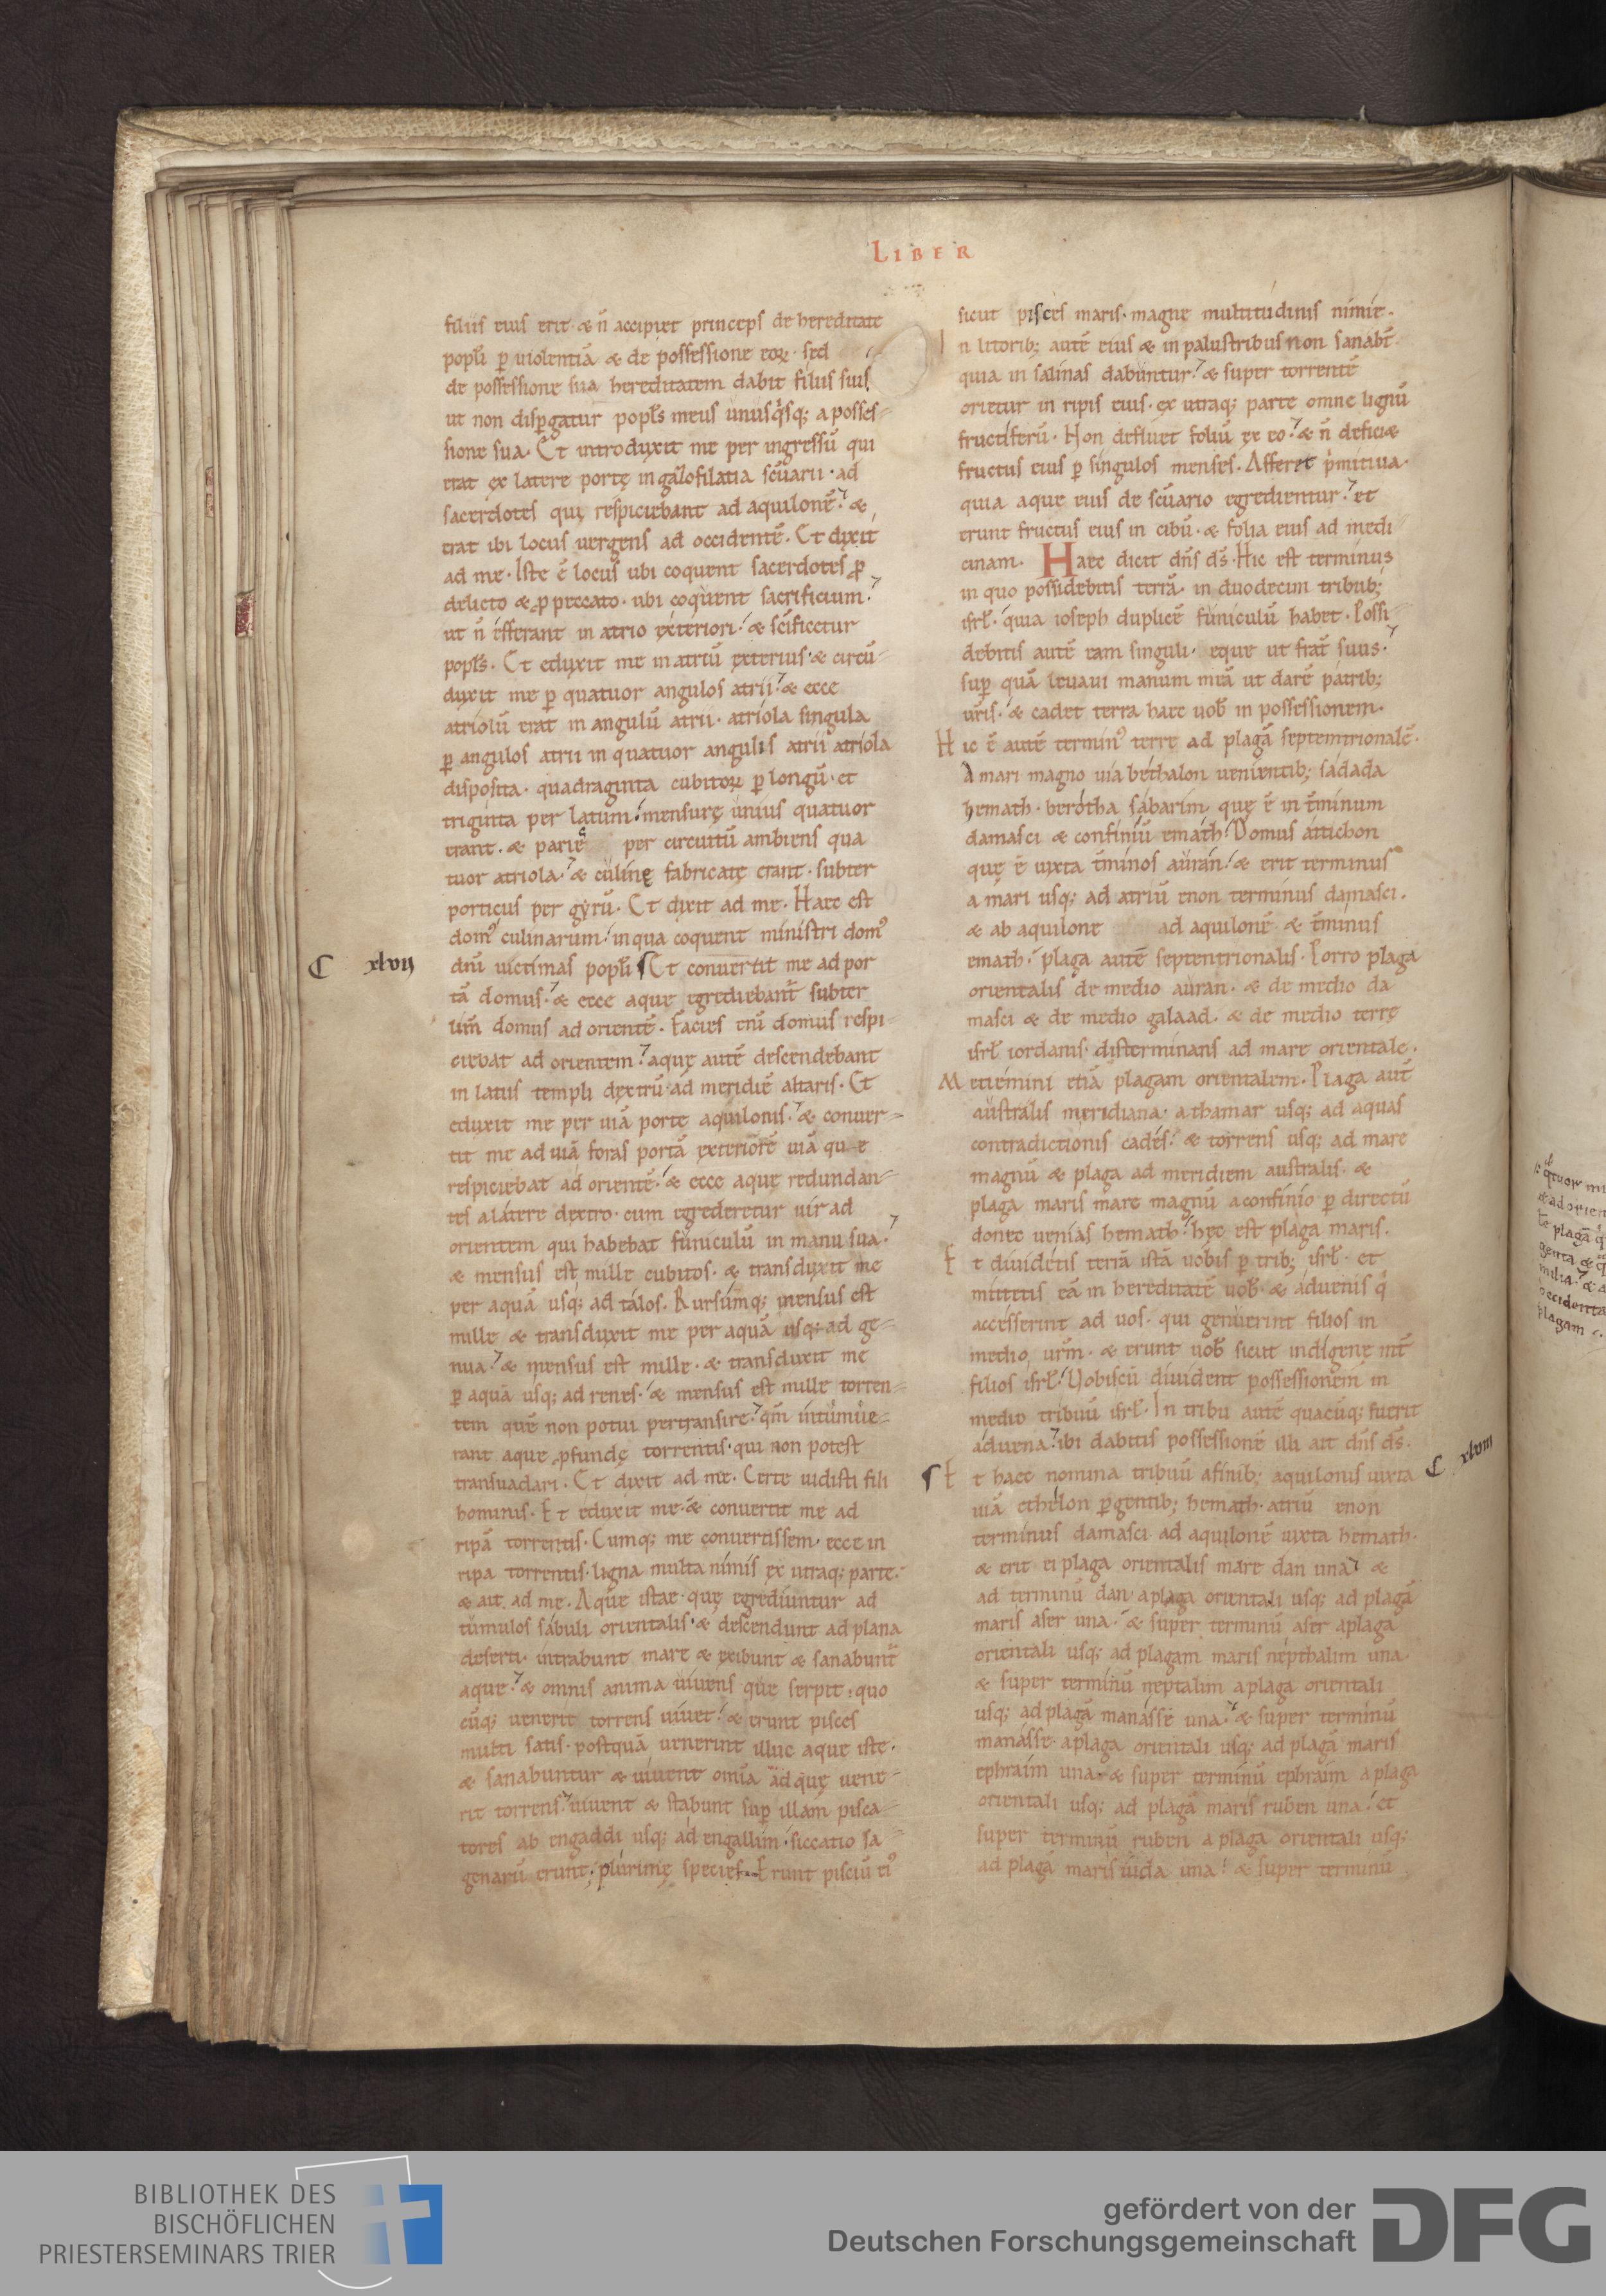 LIBER
filiis eius erit · & n̄ accipiet princeps de hereditate
popl̄i ꝑ uiolentiā & de possessione eoꝝ · sed
de possessione sua hereditatem dabit filiis suis
ut non disꝑgatur popl̄s meus unusq̇sq; a posses-
sione sua · Et introduxit me per ingressū qui
erat ex latere portę in gazofilatia scūarii · ad
sacerdotes quę respiciebant ad aquilonē · &
erat ibi locus uergens ad occidentē · Et dixit
ad me · Iste ē locus ubi coquent sacerdotes ꝓ
delicto & ꝓ peccato · ubi coquent sacrificium ·
ut n̄ efferant in atrio exteriori · & sc̄ificetur
popl̄s · Et eduxit me in atriū exterius · & circū-
duxit me ꝑ quatuor angulos atrii · & ecce
atriolū erat in angulū atrii · atriola singula
ꝑ angulos atrii in quatuor angulis atrii atriola
disposita · quadraginta cubitoꝝ ꝑ longū · et
triginta per latum · mensurę unius quatuor
erant · & parieˢ per circuitū ambiens qua
tuor atriola · & culinę fabricatę erant · subter
porticus per gyrū · Et dixit ad me · Haec est
dom᷒ culinarum · in qua coquent ministri dom᷒
C xlvij dn̄i uictimas popl̄i Et conuertit me ad por
tā domus · & ecce aque egrediebant̄ subter
lim̄ domus ad orientē · Facies eni domus respi-
ciebat ad orientem · aquę autē descendebant
in latus templi dextrū · ad meridiē altaris · Et
eduxit me per uiā porte aquilonis · & conuer-
tit me ad uiā foras portā exteriorē uiā quae
respiciebat ad orientē · & ecce aquę redundan-
tes a latere dextro · cum egrederetur uir ad
orientem qui habebat funiculū in manu sua ·
& mensus est mille cubitos · & transduxit me
per aquā usq; ad talos · Rursumq; mensus est
mille & transduxit me per aquā usq; ad ge-
nua · & mensus est mille · & transduxit me
ꝑ aquā usq; ad renes · & mensus est mille torren-
tem quē non potui pertransire · qm̄ intumue-
rant aque ꝓfundę torrentis · qui non potest
transuadari · Et dixit ad me · Certe uidisti fili
hominis · Et eduxit me · & conuertit me ad
ripā torrentis · Cumq; me conuertissem · ecce in
ripa torrentis · ligna multa nimis ex utraq; parte ·
& ait ad me · Aque istae · quę egrediuntur ad
tumulos sabuli orientalis · & descendunt ad plana
deserti · intrabunt mare & exibunt & sanabunt̄
aque · & omnis anima uiuens que serpit · quo
cūq; uenerit torrens uiuet · & erunt pisces
multi satis · postquā uenerint illuc aque iste ·
& sanabuntur & uiuent omīa ad quę uene-
rit torrens · uiuent & stabunt suꝑ illam pisca-
tores ab engaddi usq; ad engallim · siccatio sa-
genarū erunt · plurimę species · Erunt pisciū ei᷒
sicut pisces maris · magnę multitudinis nimie ·
In litorib; autē eius & in palustribus non sanabt̄ ·
quia in salinas dabuntur · & super torrentē
orietur in ripis eius · ex utraq; parte omne lignū
fructiferū · Non defluet foliū ex eo · & n̄ defici&
fructus eius ꝑ singulos menses · Afferet p̍mitiua ·
quia aque eius de scūario egredientur · et
erunt fructus eius in cibū · & folia eius ad medi
cinam · Haec dicit dn̄s ds̄ · Hic est terminus
in quo possidebitis terrā · in duodecim tribub;
isrl̄ · quia ioseph duplicē funiculū habet · Possi-
debitis autē eam singuli · eque ut frat̄ suus ·
suꝑ quā leuaui manum meā ut darē patrib;
ur̄is · & cadet terra haec uob̄ in possessionem ·
Hic ē autē termin᷒ terre ad plagā septemtrionalē ·
A mari magno uia bethalon uenientib; sadada
hemath · berotha sabarim quę ē in t̄minum
damasci & confiniū emath · Domus attichon
quę ē iuxta t̄minos auran · & erit terminus
a mari usq; ad atriū enon terminus damasci ·
& ab aquilone ad aquilonē & t̄minus
emath · plaga autē septentrionalis · Porro plaga
orientalis de medio auran · & de medio da
masci & de medio galaad · & de medio terrę
isrl̄ iordanis · disterminans ad mare orientale ·
Metiemini etiā plagam orientalem · Plaga aut̄
australis meridiana · a thamar usq; ad aquas
contradictionis cades · & torrens usq; ad mare
magnū & plaga ad meridiem australis · &
plaga maris mare magnū a confinio ꝑ directū
donec uenias hemath · hęc est plaga maris ·
Et diuidetis terrā istā uobis ꝑ trib; isrl̄ · et
mittetis eā in hereditatē uob̄ · & aduenis q̇
accesserint ad uos · qui genuerint filios in
medio ur̄m · & erunt uob̄ sicut indigenę int̄
filios isrl̄ · Uobiscū diuident possessionem in
medio tribuū isrl̄ · In tribu autē quacūq; fuerit
aduena · ibi dabitis possessionē illi ait dn̄s ds̄ ·
Et haec nomina tribuū a finib; aquilonis iuxta C xlviii
uiā ethelon ꝑgentib; hemath · atriū enon
terminus damasci ad aquilonē iuxta hemath ·
& erit ei plaga orientalis mare dan una · &
ad terminū dan · a plaga orientali usq; ad plagā
maris aser una · & super terminū aser a plaga
orientali usq; ad plagam maris nepthalim una ·
& super terminū neptalim a plaga orientali
usq; ad plagā manasse una · & super terminū
manasse · a plaga orientali usq; ad plagā maris
ephraim una · & super terminū ephraim a plaga
orientali usq; ad plagā maris ruben una · et
super terminū ruben a plaga orientali usq;
ad plagā maris iuda una · & super terminū
BIBLIOTHEK DES
BISCHÖFLICHEN
PRIESTERSEMINARS TRIER
gefördert von der
Deutschen Forschungsgemeinschaft
DFG